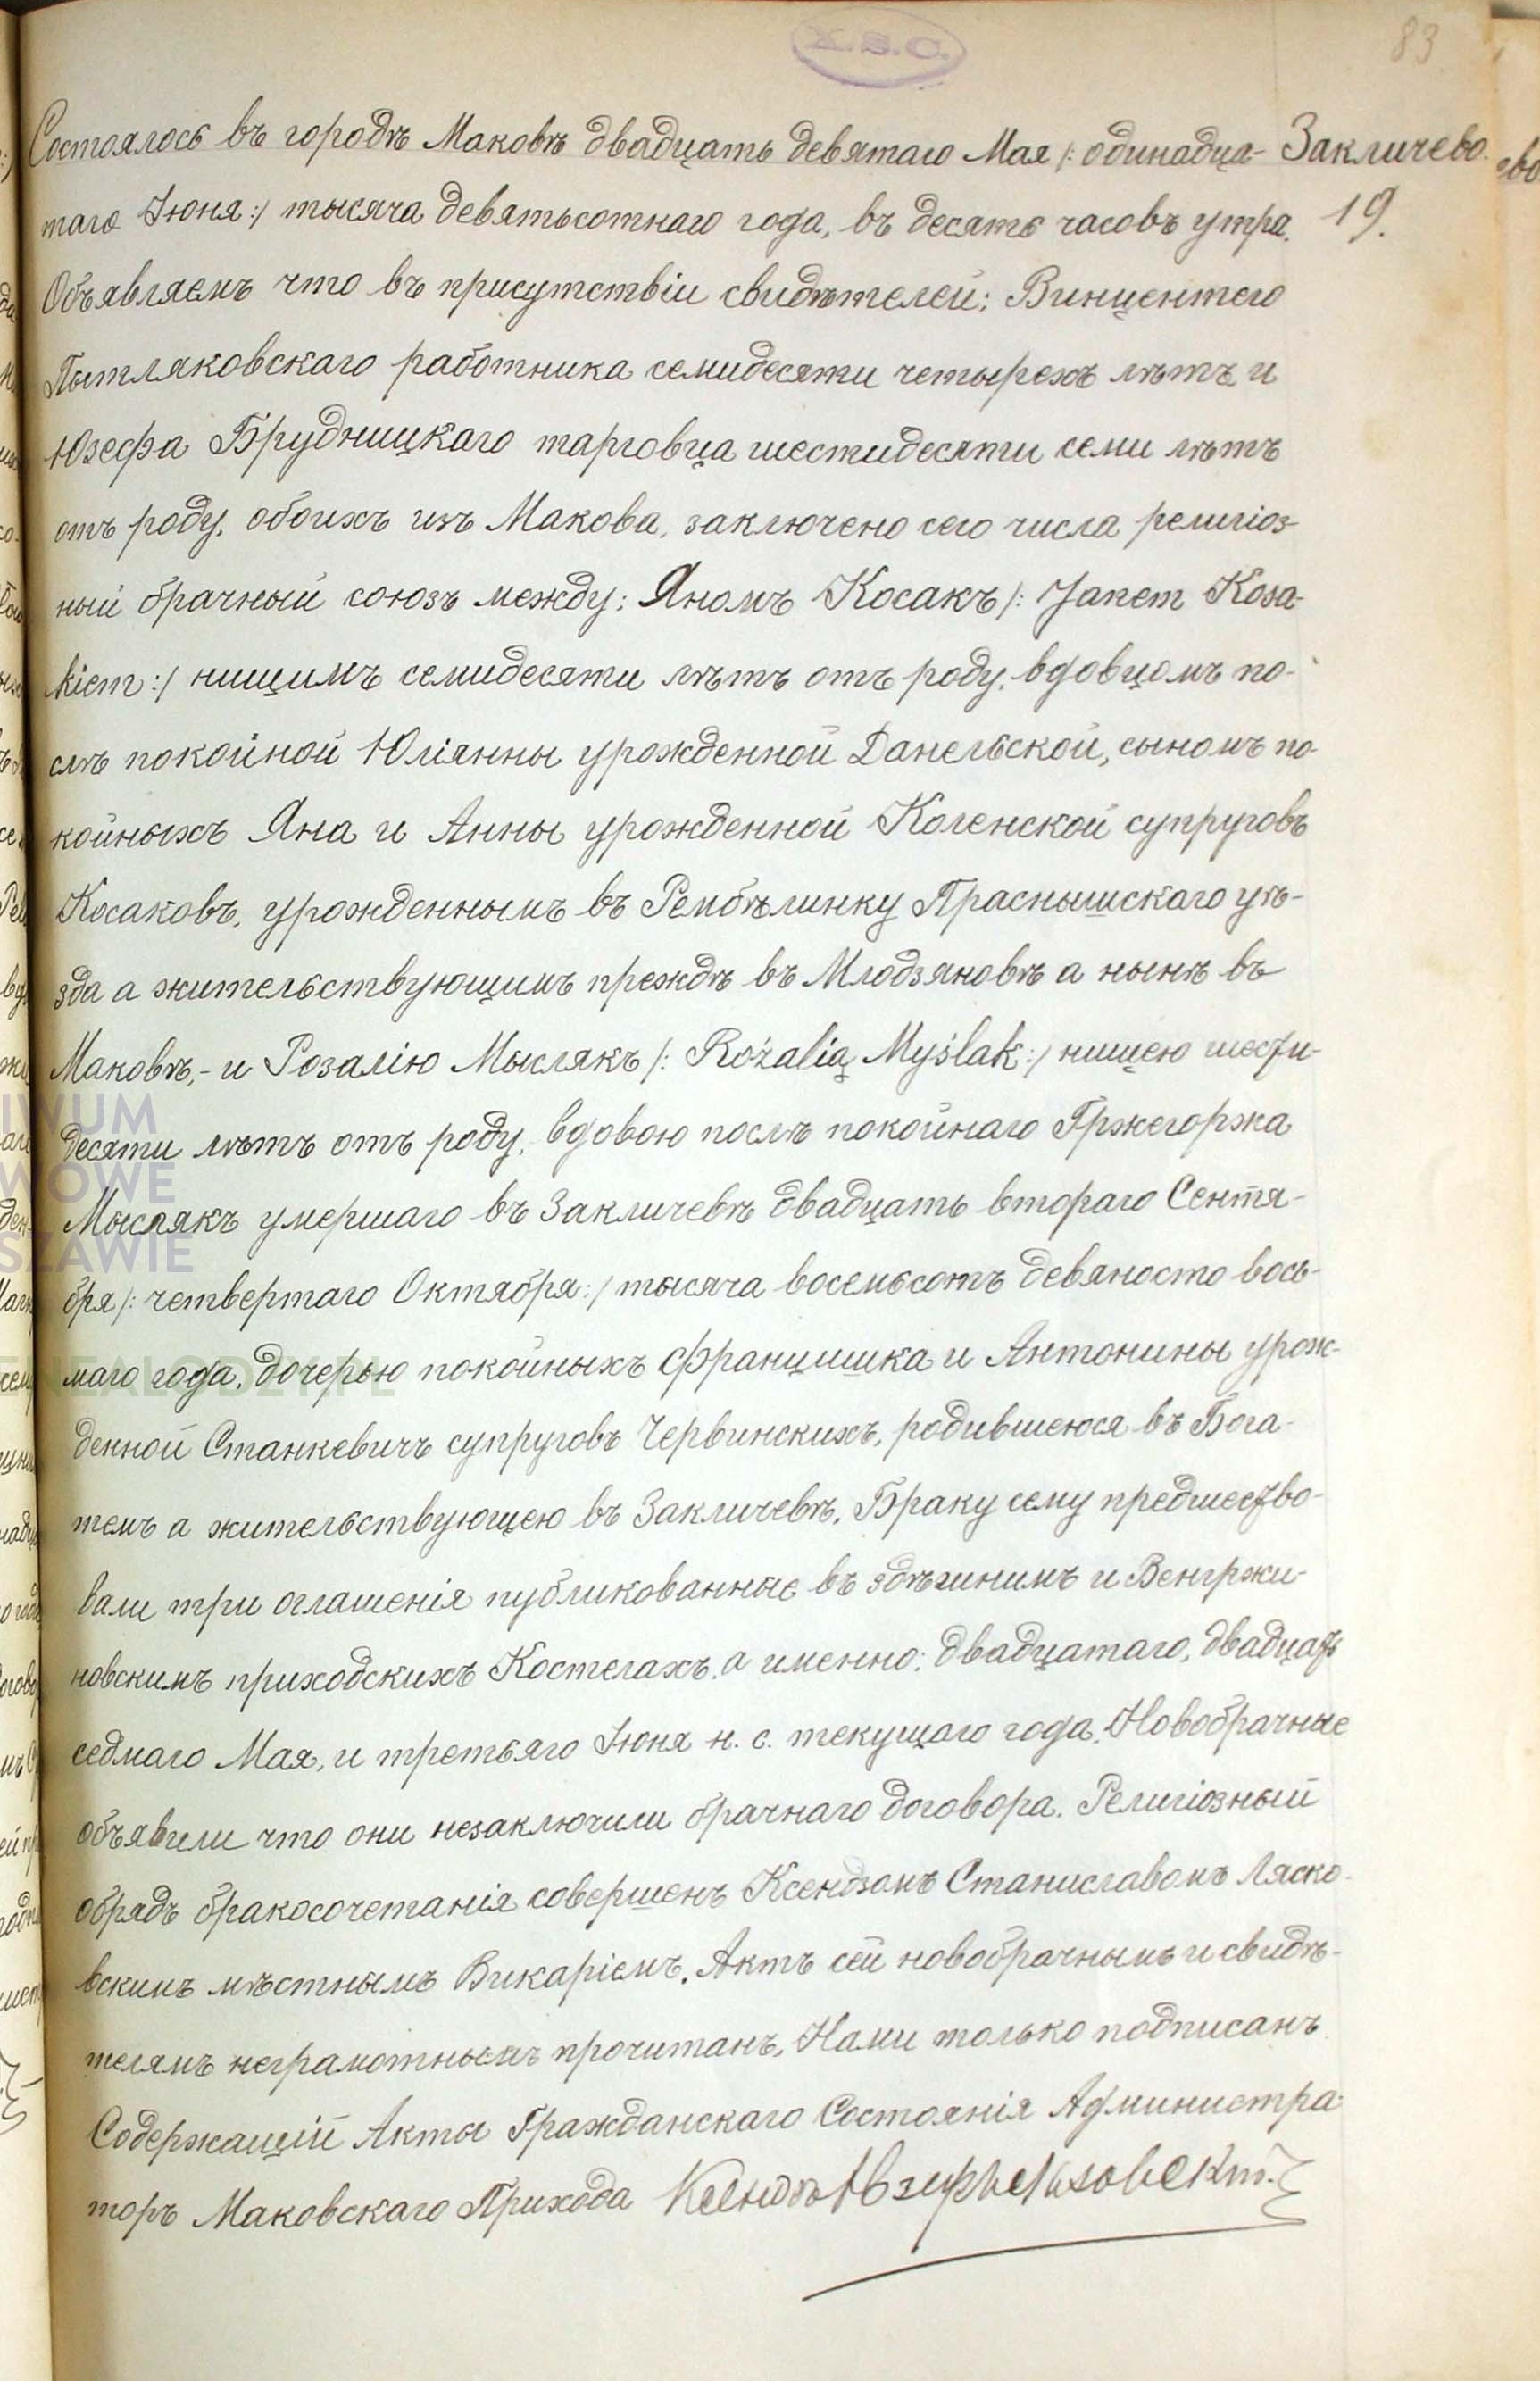 83
К.В.С.
Состоялось въ городѣ Маковѣ двадцать девятаго Мая /: одинадца-
Закличево.
19.
таго Іюня :/ тысяча девятьсотнаго года, въ десять часовъ утра.
Объявляемъ что въ присутствіи свидѣтелей: Винцентего
Пытляковскаго работника семидесяти четырехъ лѣтъ и
Юзефа Брудницкаго тарговца шестидесяти семи лѣтъ
отъ роду, обоихъ изъ Макова, заключено сего числа религіоз-
ный брачный союзъ между: Яномъ Косакъ /: Janem Kosa-
kiem :/ нищимъ семидесяти лѣтъ отъ роду, вдовцомъ по-
слѣ покойной Юліянны урожденной Данельской, сыномъ по-
койныхъ Яна и Анны урожденной Коленской супруговъ
Косаковъ, урожденнымъ въ Рембѣлинку Праснышскаго уѣ-
зда а жительствующимъ преждѣ въ Млодзяновѣ а нынѣ въ
Маковѣ, - и Розалію Мыслякъ /: Rożalią Myślak :/ нищею шести-
десяти лѣтъ отъ роду, вдовою послѣ покойнаго Гржегоржа
Мыслякъ умершаго въ Закличевѣ двадцать втораго Сентя-
бря /: четвертаго Октября :/ тысяча восемьсотъ девяносто вось-
маго года, дочерью покойныхъ Францишка и Антонины урож-
денной Станкевичъ супруговъ Червинскихъ, родившеюся въ Бога-
темъ а жительствующею въ Закличевѣ. Браку сему предшество-
вали три оглашенія публикованные въ здѣшнимъ и Венгржи-
новскимъ приходскихъ Костелахъ, а именно: двадцатаго, двадцать
седмаго Мая, и третьяго Іюня н. с. текущаго года. Новобрачные
объявили что они незаключили брачнаго договора. Религіозный
обрядъ бракосочетанія совершенъ Ксендзомъ Станиславомъ Ляско-
вскимъ мѣстнымъ Викаріемъ. Актъ сей новобрачнымъ и свидѣ-
телямъ неграмотнымъ прочитанъ, Нами только подписанъ
Содержащій Акты Гражданскаго Состоянія Администра-
торъ Маковскаго Прихода Ксендзъ